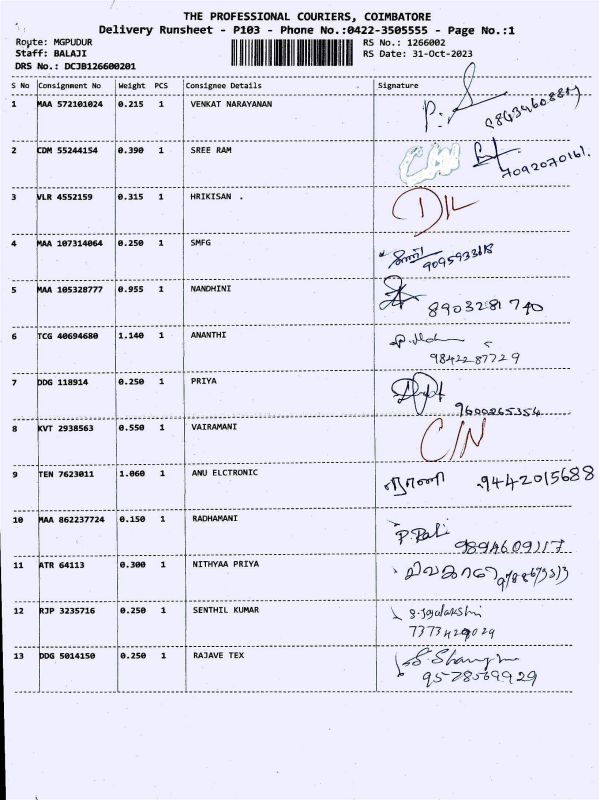 THE PROFESSIONAL COURIERS, COIMBATORE
Delivery Runsheet - P103 - Phone No.:0422-3505555 - Page No.:1
Route: MGPUDUR RS No.: 1266002
Staff: BALAJI RS Date: 31-Oct-2023
DRS No.: DCJB126600201
S No Consignment No Weight PCS Consignee Details Signature
1 MAA 572101024 0.215 1 VENKAT NARAYANAN
2 CDM 55244154 0.390 1 SREE RAM
7092070161.
3 VLR 4552159 0.315 1 HRIKISAN . D/L
4 MAA 107314064 0.250 1 SMFG
5 MAA 105328777 0.955 1 NANDHINI
8903281740
6 TCG 40694680 1.140 1 ANANTHI
9842287729
7 DDG 118914 0.250 1 PRIYA
9600265354
8 KVT 2938563 0.550 1 VAIRAMANI C/N
9 TEN 7623011 1.060 1 ANU ELCTRONIC 9442015688
10 MAA 862237724 0.150 1 RADHAMANI
9894609117
11 ATR 64113 0.300 1 NITHYAA PRIYA
12 RJP 3235716 0.250 1 SENTHIL KUMAR
7373429029
13 DDG 5014150 0.250 1 RAJAVE TEX
9578569929